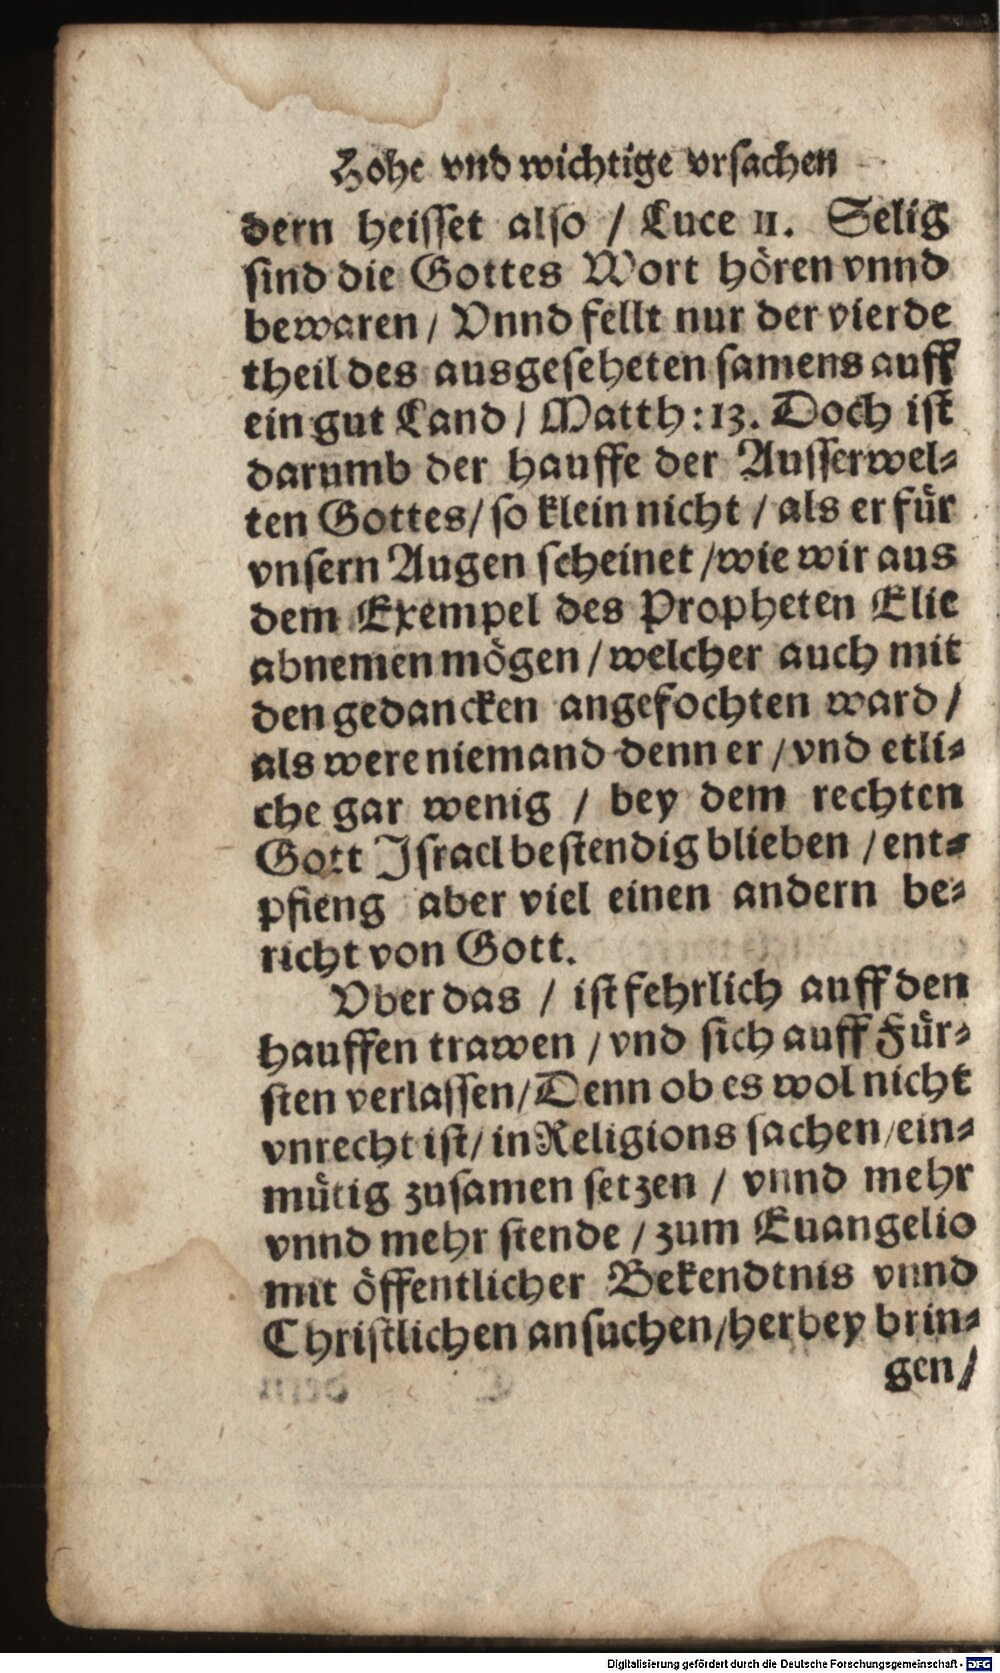 Hohe vnd wichtige vrsachen
dern heisset also / Luce 11. Selig
sind die Gottes Wort hören vnnd
bewaren / Vnnd fellt nur der vierde
theil des ausgeseheten samens auff
ein gut Land / Matth: 13. Doch ist
darumb der hauffe der Ausserwel⸗
ten Gottes / so klein nicht / als er für
vnsern Augen scheinet / wie wir aus
dem Exempel des Propheten Elie
abnemen mögen / welcher auch mit
den gedancken angefochten ward /
als were niemand denn er / vnd etli⸗
che gar wenig / bey dem rechten
Gott Israel bestendig blieben / ent⸗
pfieng aber viel einen andern be⸗
richt von Gott.
Vber das / ist fehrlich auff den
hauffen trawen / vnd sich auff Für⸗
sten verlassen / Denn ob es wol nicht
vnrecht ist / in Religions sachen / ein⸗
mütig zusamen setzen / vnnd mehr
vnnd mehr stende / zum Euangelio
mit öffentlicher Bekendtnis vnnd
Christlichen ansuchen / herbey brin⸗
gen /
Digitalisierung gefördert durch die Deutsche Forschungsgemeinschaft - DFG